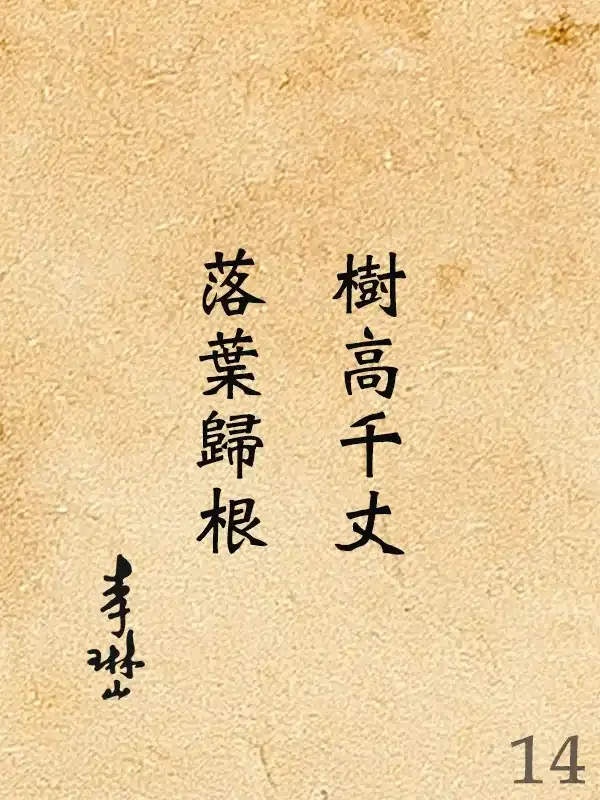 樹高千丈
落葉歸根
李琳山
14